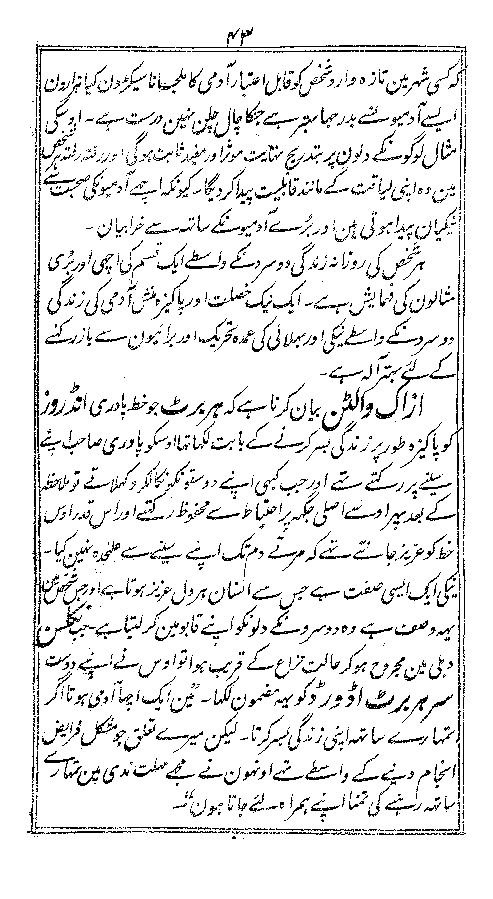 ۴۳
کہ کسی شہر مین تازہ وارد شخص کو قابل اعتبار آدمی کا ملجانا سیکڑون کیا ہزارون
ایسے آدمیونسے بدرجہا بہتر ہے جنکا چال چلن نہین درست ہے۔ اوسکی
مثال لوگونکے دلون پر بتدریج نہایت موثر اور مفید ثابت ہوگی اور رفتہ رفتہ شخص
مین وہ اپنی لیاقت کے مانند قابلیت پیدا کردیگا۔ کیونکہ اچھے آدمیونکی صحبت سے
نیکیان پیدا ہوتی ہین اور برُے آدمیونکے ساتھ سے خرابیان۔
ہر شخص کی روزانہ زندگی دوسرونکے واسطے ایک قسم کی اچھی اور بُری
مثالون کی نمایش ہے۔ ایک نیک خصلت اور پاکیزہ منش آدمی کی زندگی
دوسرونکے واسطے نیکی اور بھلائی کی عمدہ تحریک اور برائیون سے باز رکھنے
کے لئے بہتر آلہ ہے۔
ازاک والٹن بیان کرتا ہے کہ ہربرٹ جو خط پادری انڈروز
کو پاکیزہ طور پر زندگی بسر کرنے کے بابت لکھا تھا اوسکو پادری صاحب اپنے
سینے پر رکھتے تھے اور جب کبھی اپنے دوستونکو نکالکر دکھلاتے تو ملاحظہ
کے بعد پھر اوسے اصلی جگہ پر احتیاط سے محفوظ رکھتے اور اس قدر اوس
خط کو عزیز جانتے تھے کہ مرتے دم تک اپنے سینے سے علٰحدہ نہین کیا۔
نیکی ایک ایسی صفت ہے جس سے انسان ہردل عزیز ہوتا ہے اور جس شخص مین
یہہ وصف ہے وہ دوسرونکے دلونکو اپنے قابو مین کرلیتا ہے۔ جب نکلسن
دہلی مین مجروح ہوکر حالت نزاع کے قریب ہوا تو اوس نے اپنے دوست
سر ہربرٹ اڈورڈ کو یہہ مضمون لکھا۔ "مین ایک اچھا آدمی ہوتا اگر
تمہارے ساتھ اپنی زندگی بسر کرتا۔ لیکن میرے تعلق جو مشکل فرایض
انجام دینے کے واسطے تھے اونھون نے مجھے مہلت ندی مین تمہارے
ساتھ رہنے کی تمنا اپنے ہمراہ۔ لئے جاتا ہون"۔